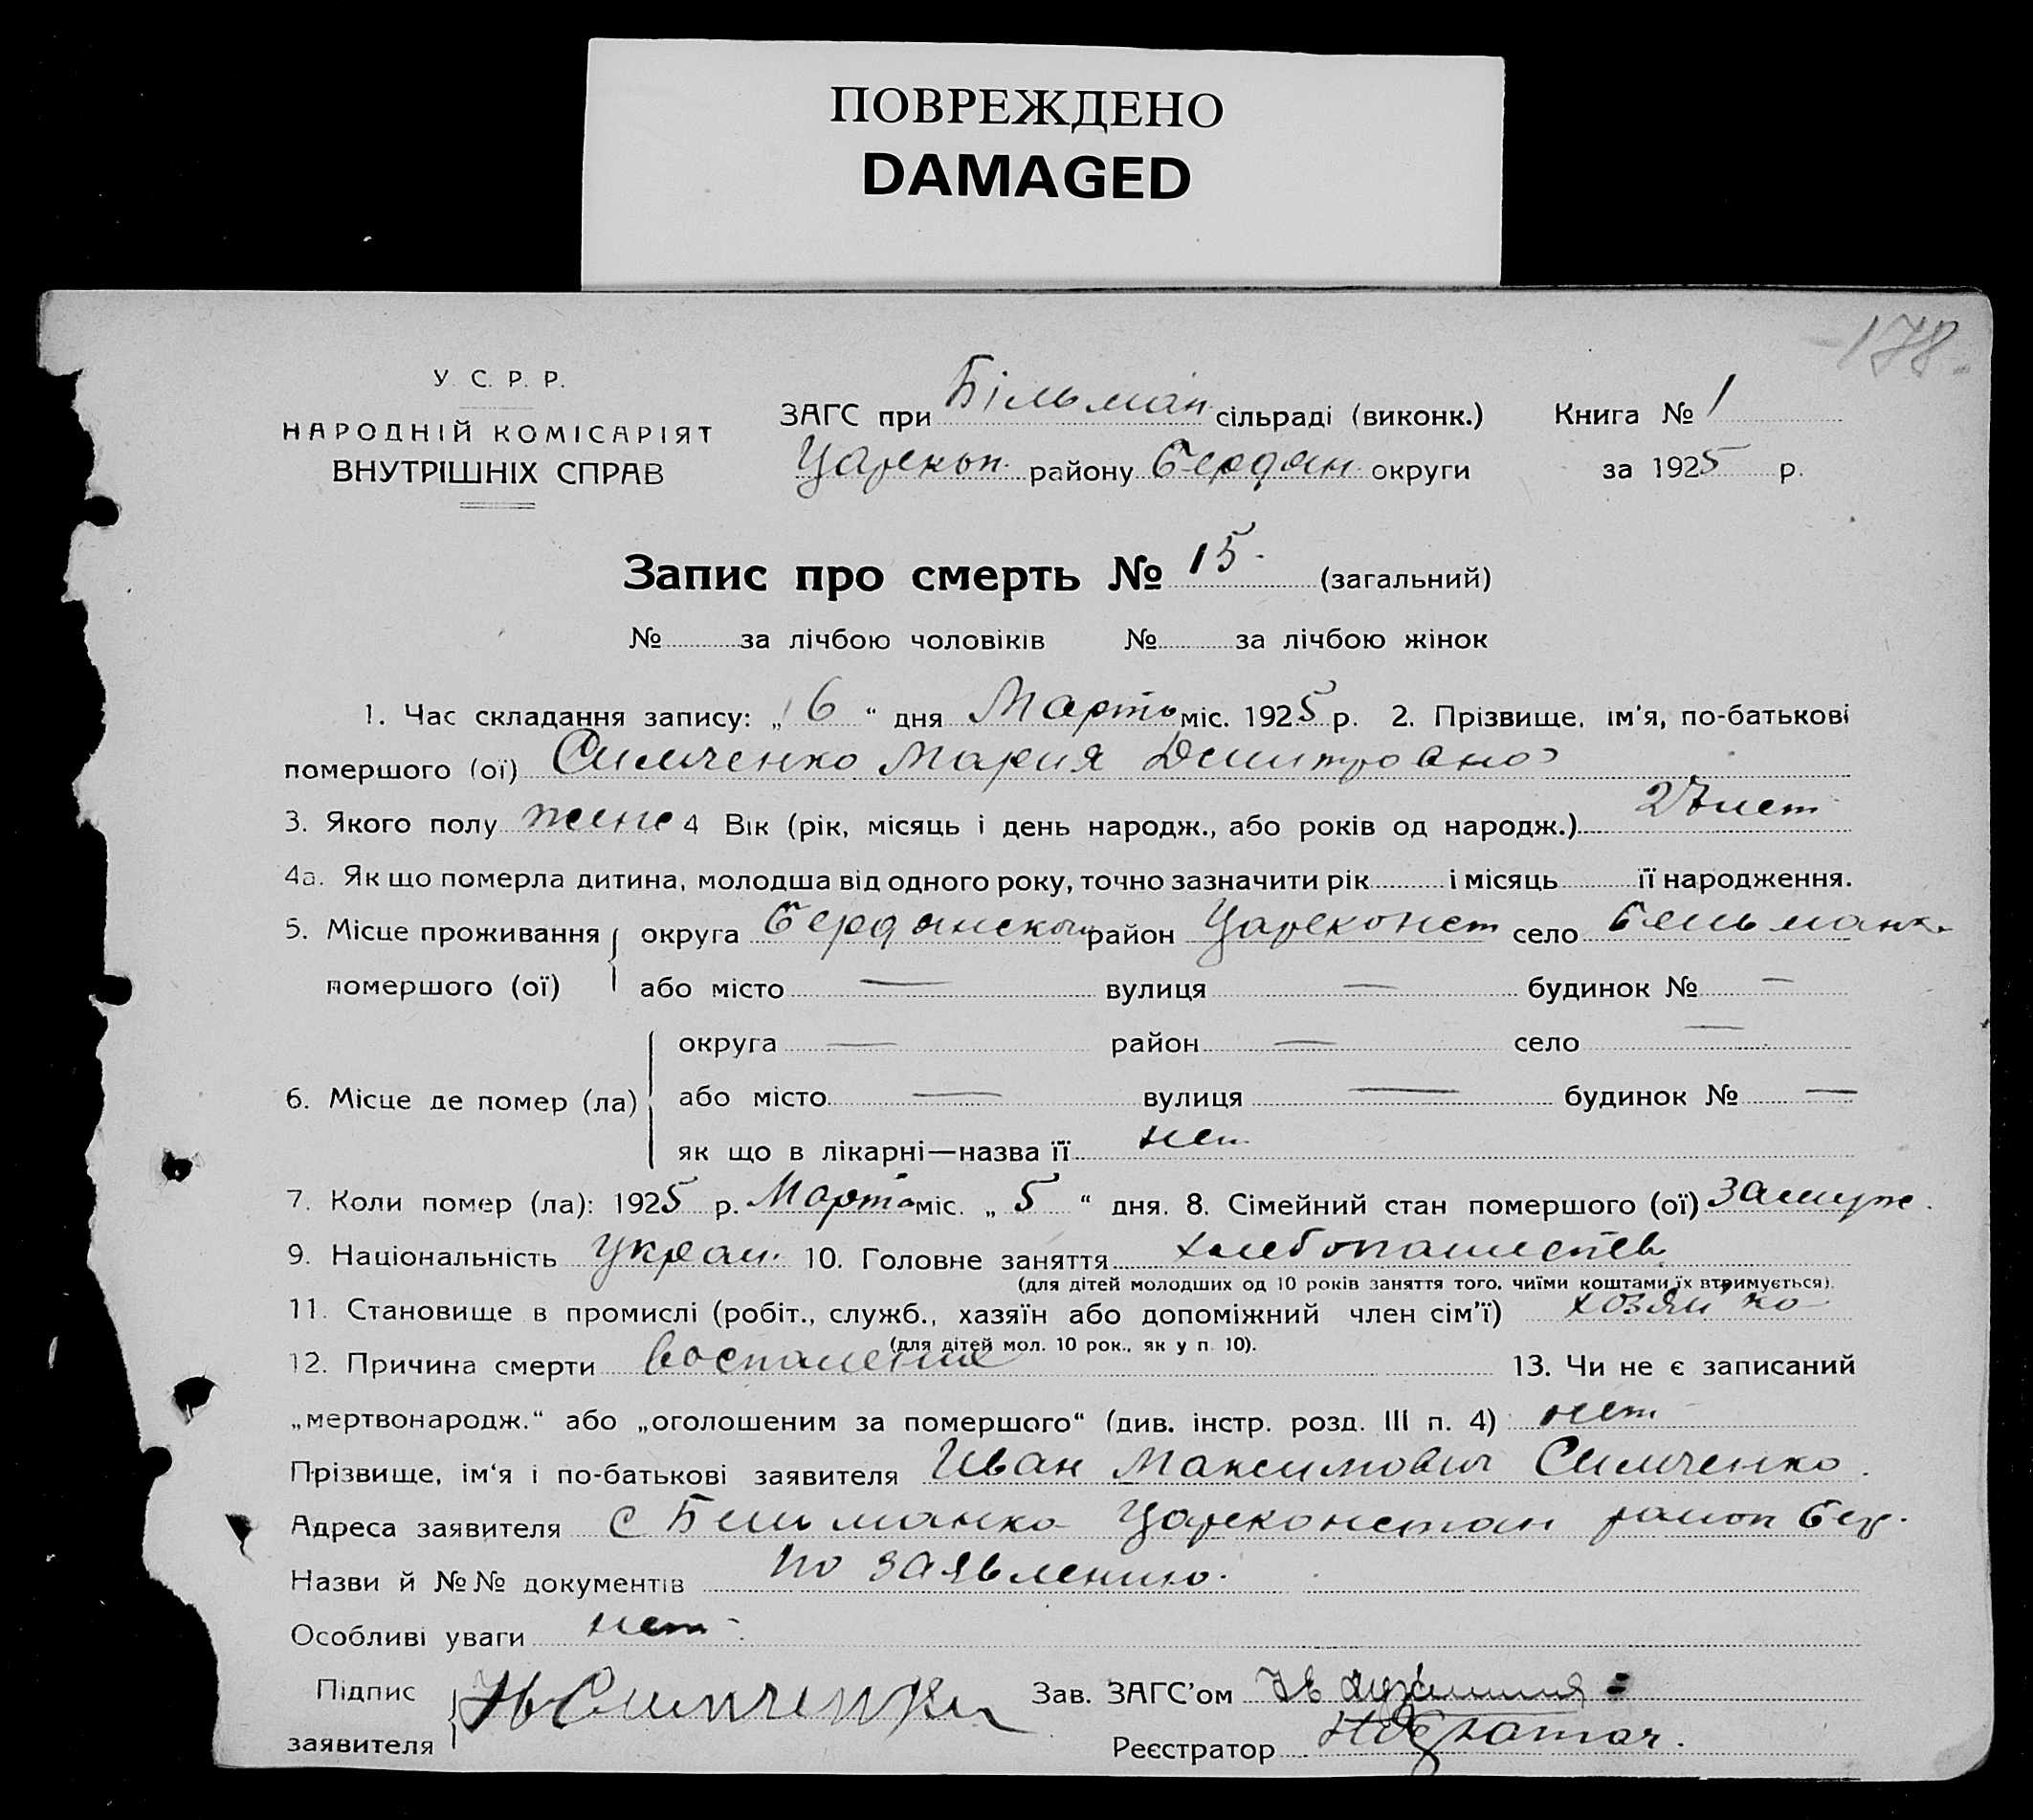 ПОВРЕЖДЕНО
DAMAGED
178.
У. С. Р. Р.
НАРОДНІЙ КОМІСАРІЯТ
ВНУТРІШНІХ СПРАВ
ЗАГС при Більман. сільраді (виконк.) Книга № 1
Царекон. району Бердян. округи за 1925 р.
Запис про смерть № 15. (загальний)
№ за лічбою чоловіків № за лічбою жінок
1. Час складання запису: „ 6 “ дня Марта міс. 1925 р. 2. Прізвище, ім'я, по-батькові
помершого (ої) Симченко Мария Дмитровна
3. Якого полу женс 4 Вік (рік, місяць і день народж., або років од народж.) 27 лет
4а. Як що померла дитина, молодша від одного року, точно зазначити рік і місяць її народження.
5. Місце проживання округа Бердянской район Цареконст село Бельманк
помершого (ої) або місто — вулиця — будинок № —
округа — район — село —
6. Місце де помер (ла) або місто — вулиця — будинок № —
як що в лікарні—назва її нет
7. Коли помер (ла): 1925 р. Марта міс. „ 5 “ дня. 8. Сімейний стан помершого (ої) замуж.
9. Національність Украин. 10. Головне заняття хлебопашеств.
(для дітей молодших од 10 років заняття того, чиїми коштами їх втримується).
11. Становище в промислі (робіт., служб., хазяїн або допоміжний член сім'ї) хозяйка
(для дітей мол. 10 рок., як у п. 10).
12. Причина смерти воспаление 13. Чи не є записаний
„мертвонародж.“ або „оголошеним за помершого“ (див. інстр. розд. III п. 4) нет
Прізвище, ім‘я і по-батькові заявителя Иван Максимович Симченко.
Адреса заявителя с Бельманка Цареконстан район Бер.
Назви й №№ документів по заявлению.
Особливі уваги нет.
Підпис заявителя Ив Симченко Зав. ЗАГС'ом
Реєстратор